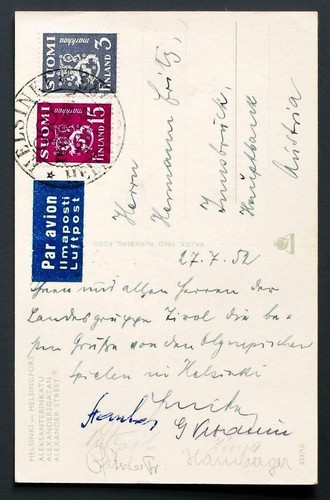 SUOMI
markkaa
3
FINLAND
SUOMI
markkaa
15
FINLAND
HELSINKI
Par avion
Ilmaposti
Luftpost
Herrn
Hermann Fritz,
Innsbruck,
Hauptbank
Austria
27.7.52
Ihnen und allen Herren der
Landesgruppe Tirol die be-
sten Grüße von den Olympischen
Spielen in Helsinki
Hamberger
HELSINKI — HELSINGFORS
ALEKSANTERINKATU
ALEXANDERSGATAN
ALEXANDER STREET